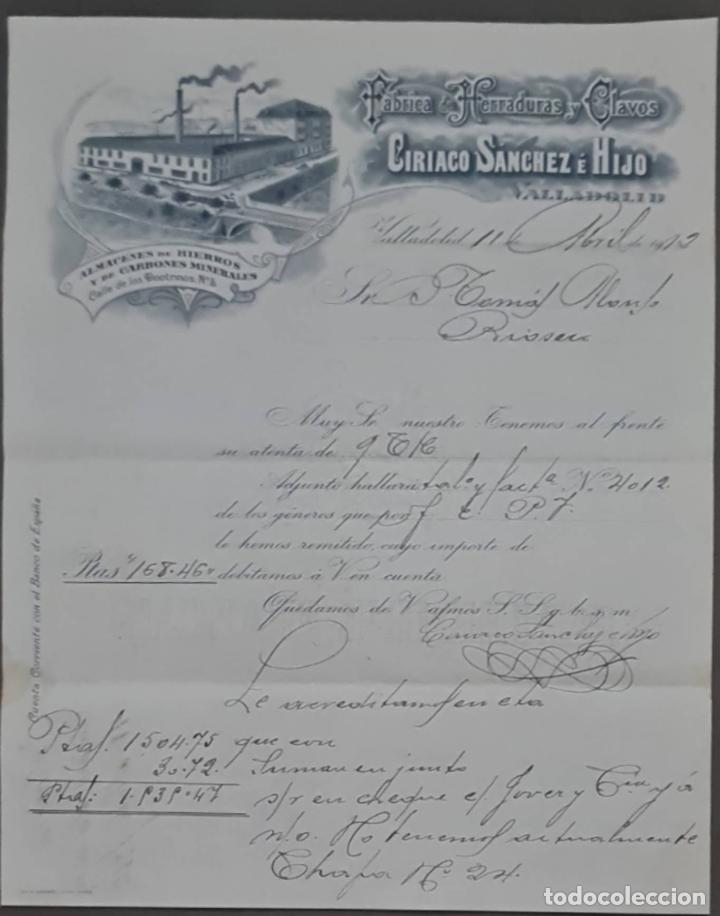 Fabrica de Herraduras y Clavos
CIRIACO SÁNCHEZ É HIJO
VALLADOLID
ALMACENES DE HIERROS
Y DE CARBONES MINERALES
Calle de las Doctrinos, Nº
Valladolid 11 de Abril de
Sr D Tomás Alonso
Rioseco
Muy Sr nuestro Tenemos al frente
su atenta de 9
Adjunto hallará tal.º y fact.ª Nº 4012
de los géneros que por f. c. P. V.
le hemos remitido, cuyo importe de
Ptas 168.46 debitamos á V. en cuenta
Quedamos de V. afmos S. S. q. b. s. m.
Ciriaco Sanchez e Hijo
Cuenta Corriente con el Banco de España
Le acreditamos en cta
Ptas. 1504.75 que con
30.72. suman en junto
Ptas:
s/r en cheque c/ Jover y Cia y á
n/o. No tenemos actualmente
Chapa Nº 24.
todocoleccion